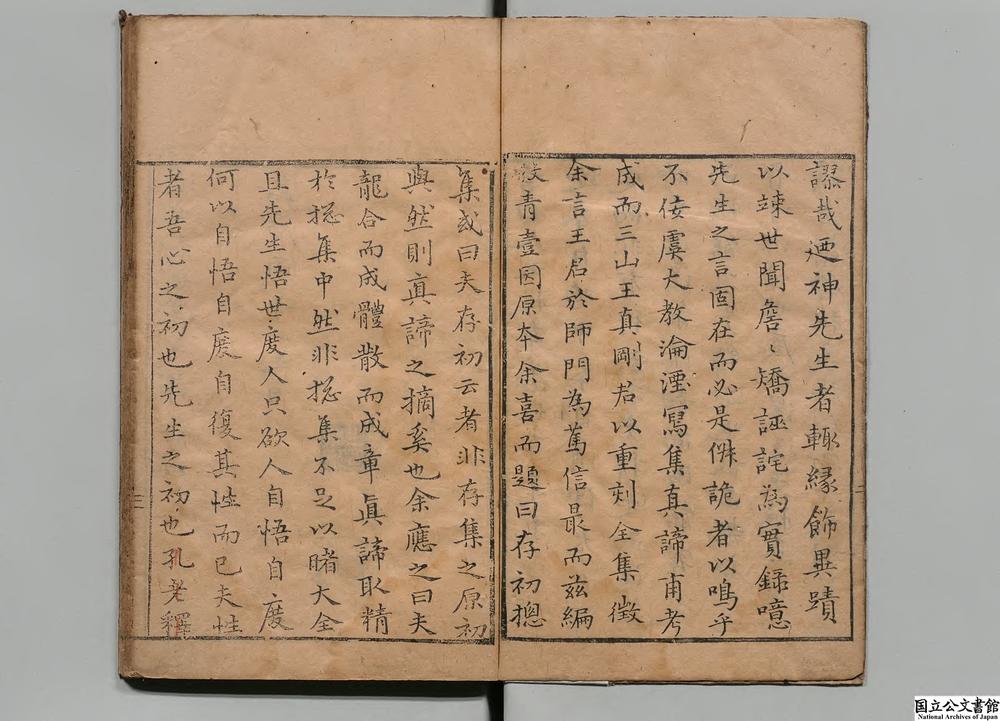 謬哉迺神先生者輙緣飾異蹟
以竦世聞詹〻矯誣詫為實録噫
先生之言固在而必是俶詭者以鳴乎
不佞虞大教淪湮寫集真諦甫考
成而三山王真剛君以重刻全集徴
余言王君於師門為篤信最而兹編
殺青壹因原本余喜而題曰存初摠
集或曰夫存初云者非存集之原初
與然則真諦之摘奚也余應之曰夫
龍合而成體散而成章眞諦取精
於捴集中然非捴集不足以睹大全
且先生悟世度人只欲人自悟自度
何以自悟自度自復其性而已夫性
者吾心之初也先生之初也孔老釋
国立公文書館
National Archives of Japan